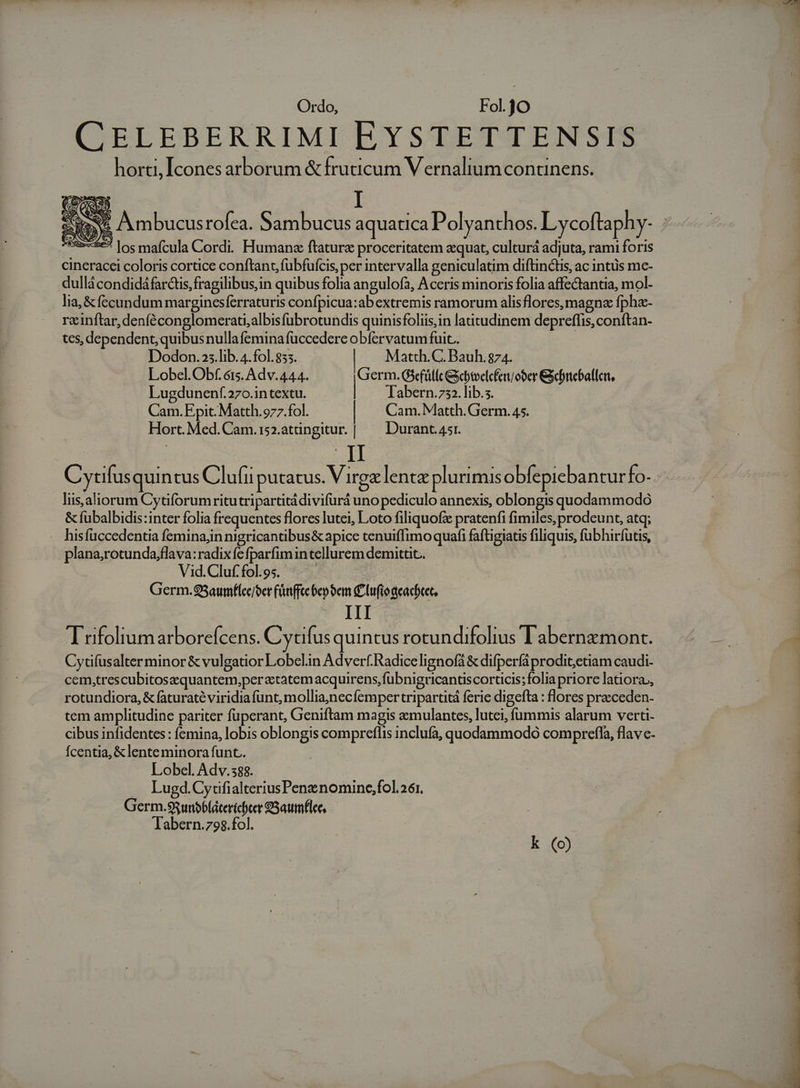 Ordo, Fol. JO
CELEBERRIMI EYSTETTENSIS
horti, Icones arborum & fruticum Vernalium continens.
I
SAmbucus roſea. Sambucus aquatica Polyanthos. Lycoſtaphy-
los maſcula Cordi. Humanæ ſtaturæ proceritatem æquat, culturá adjuta, rami foris
cineracei coloris cortice conſtant, ſubfuſcis, per intervalla geniculatim diſtinctis, ac intùs me-
dullá condidá farctis, fragilibus, in quibus folia anguloſa, Aceris minoris folia affectantia, mol-
lia, & ſecundum margines ſerraturis conſpicua: ab extremis ramorum alis flores, magnæ ſphæ-
ræ inſtar, denſé conglomerati, albis ſubrotundis quinis foliis, in latitudinem depreſſis, conſtan-
tes, dependent, quibus nulla ſemina ſuccedere obſervatum fuit.
Dodon. 25. lib. 4. fol. 855. Matth. C. Bauh. 874.
Lobel. Obſ. 615. Adv. 444. Germ. Gefüllt Schwelcken/ oder Schneballen.
Lugdunenſ. 270. in textu. Tabern. 752. lib. 3.
Cam. Epit. Matth. 977. fol. Cam. Matth. Germ. 45.
Hort. Med. Cam. 152. attingitur. Durant. 451.
II
Cytiſus quintus Cluſii putatus. Virgæ lentæ plurimis obſepiebantur fo-
liis, aliorum Cytiſorum ritu tripartitá diviſurá uno pediculo annexis, oblongis quodammodó
& ſubalbidis: inter folia frequentes flores lutei, Loto ſiliquoſæ pratenſi ſimiles, prodeunt, atq;
his ſuccedentia ſemina, in nigricantibus & apice tenuiſſimo quaſi faſtigiatis ſiliquis, ſubhirſutis,
plana, rotunda, flava: radix ſe ſparſim in tellurem demittit.
Vid. Cluſ. fol. 95.
Germ. Baumklee/ der fünffte bey dem Cluſio geachtet.
III
Trifolium arboreſcens. Cytiſus quintus rotundifolius Tabernæmont.
Cytiſus alter minor & vulgatior Lobel. in Adverſ. Radice lignoſá & diſperſá prodit, etiam caudi-
cem, tres cubitos æquantem, per ætatem acquirens, ſubnigricantis corticis; folia priore latiora,
rotundiora, & ſaturaté viridia ſunt, mollia, nec ſemper tripartitá ſerie digeſta: flores præceden-
tem amplitudine pariter ſuperant, Geniſtam magis æmulantes, lutei, ſummis alarum verti-
cibus inſidentes: ſemina, lobis oblongis compreſſis incluſa, quodammodó compreſſa, flave-
ſcentia, & lente minora ſunt.
Lobel. Adv. 388.
Lugd. Cytiſi alterius Penæ nomine, fol. 261.
Germ. Rundbläterichter Baumklee.
Tabern. 798. fol.
k (o)